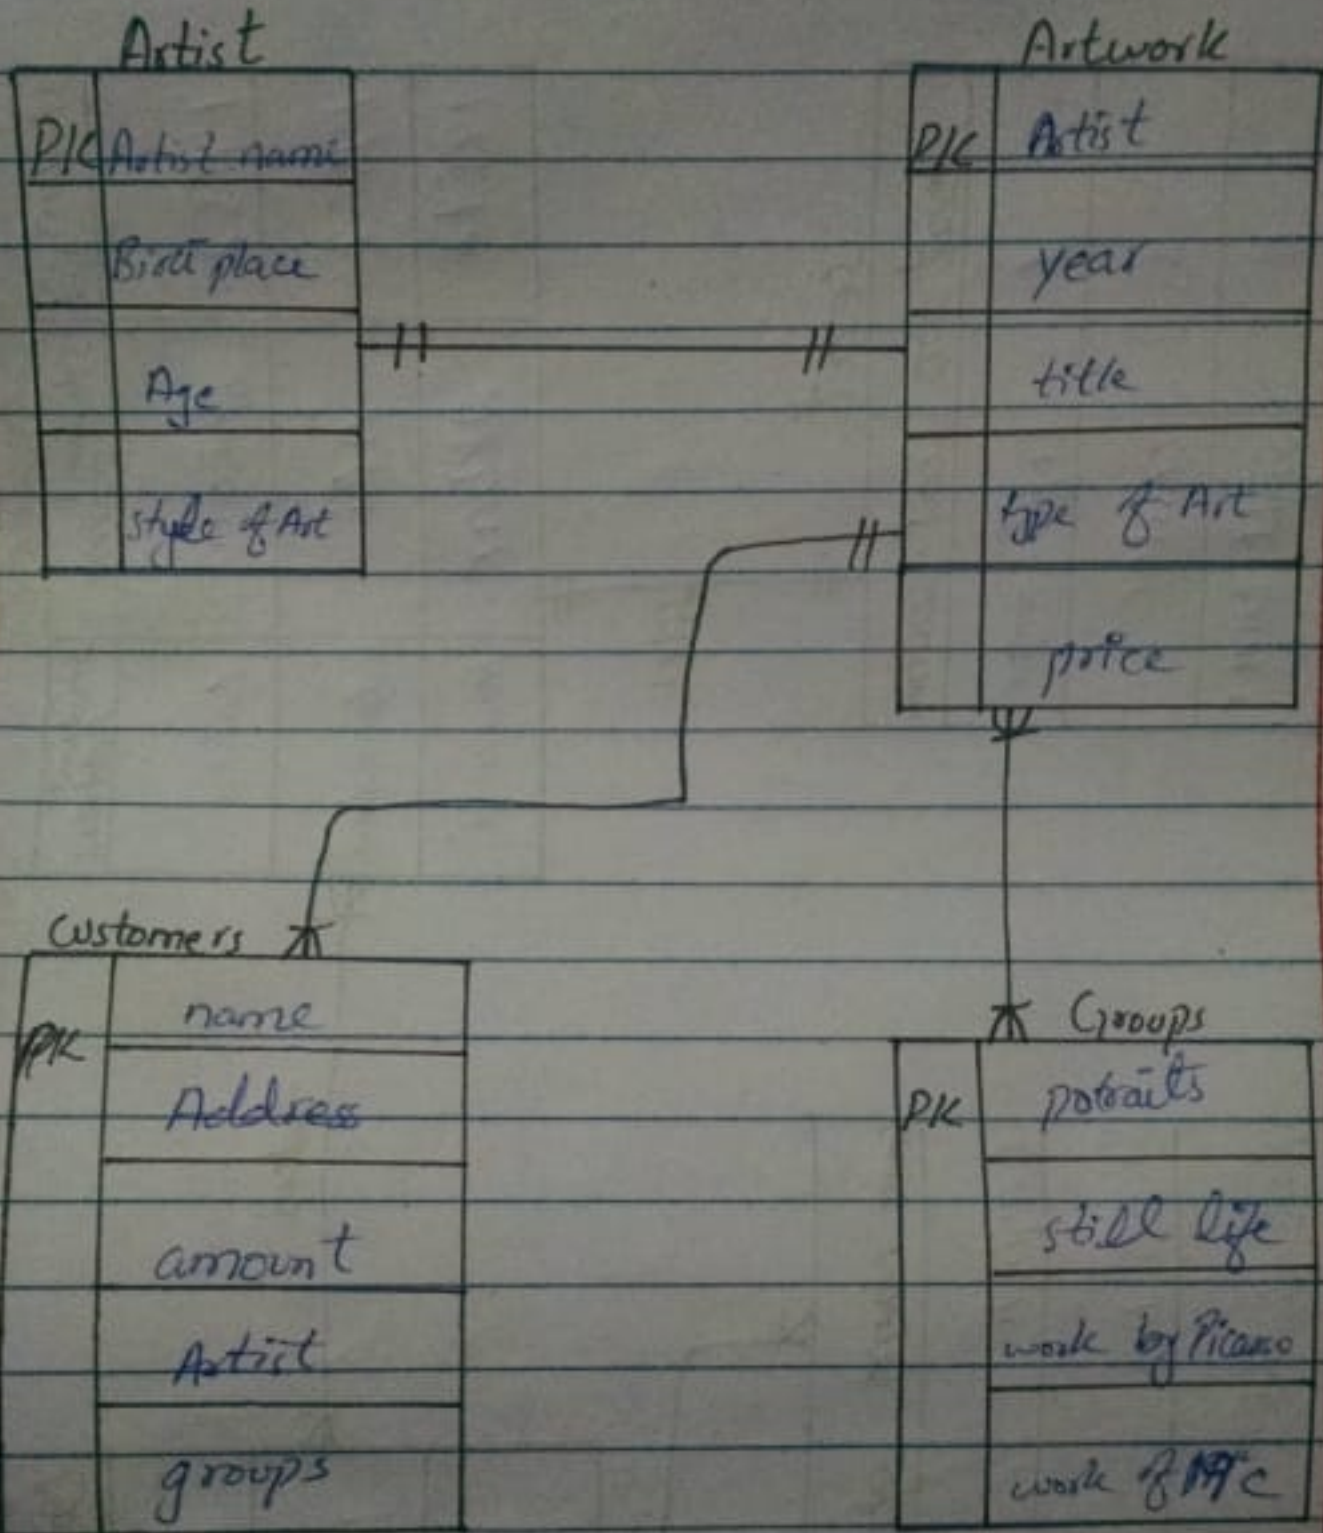 Artist
PK Artist name
Birth place
Age
style of Art
Artwork
PK Artist
year
title
type of Art
price
Customers
PK name
Address
amount
Artist
groups
Groups
PK potraits
still life
work by Picasso
work of